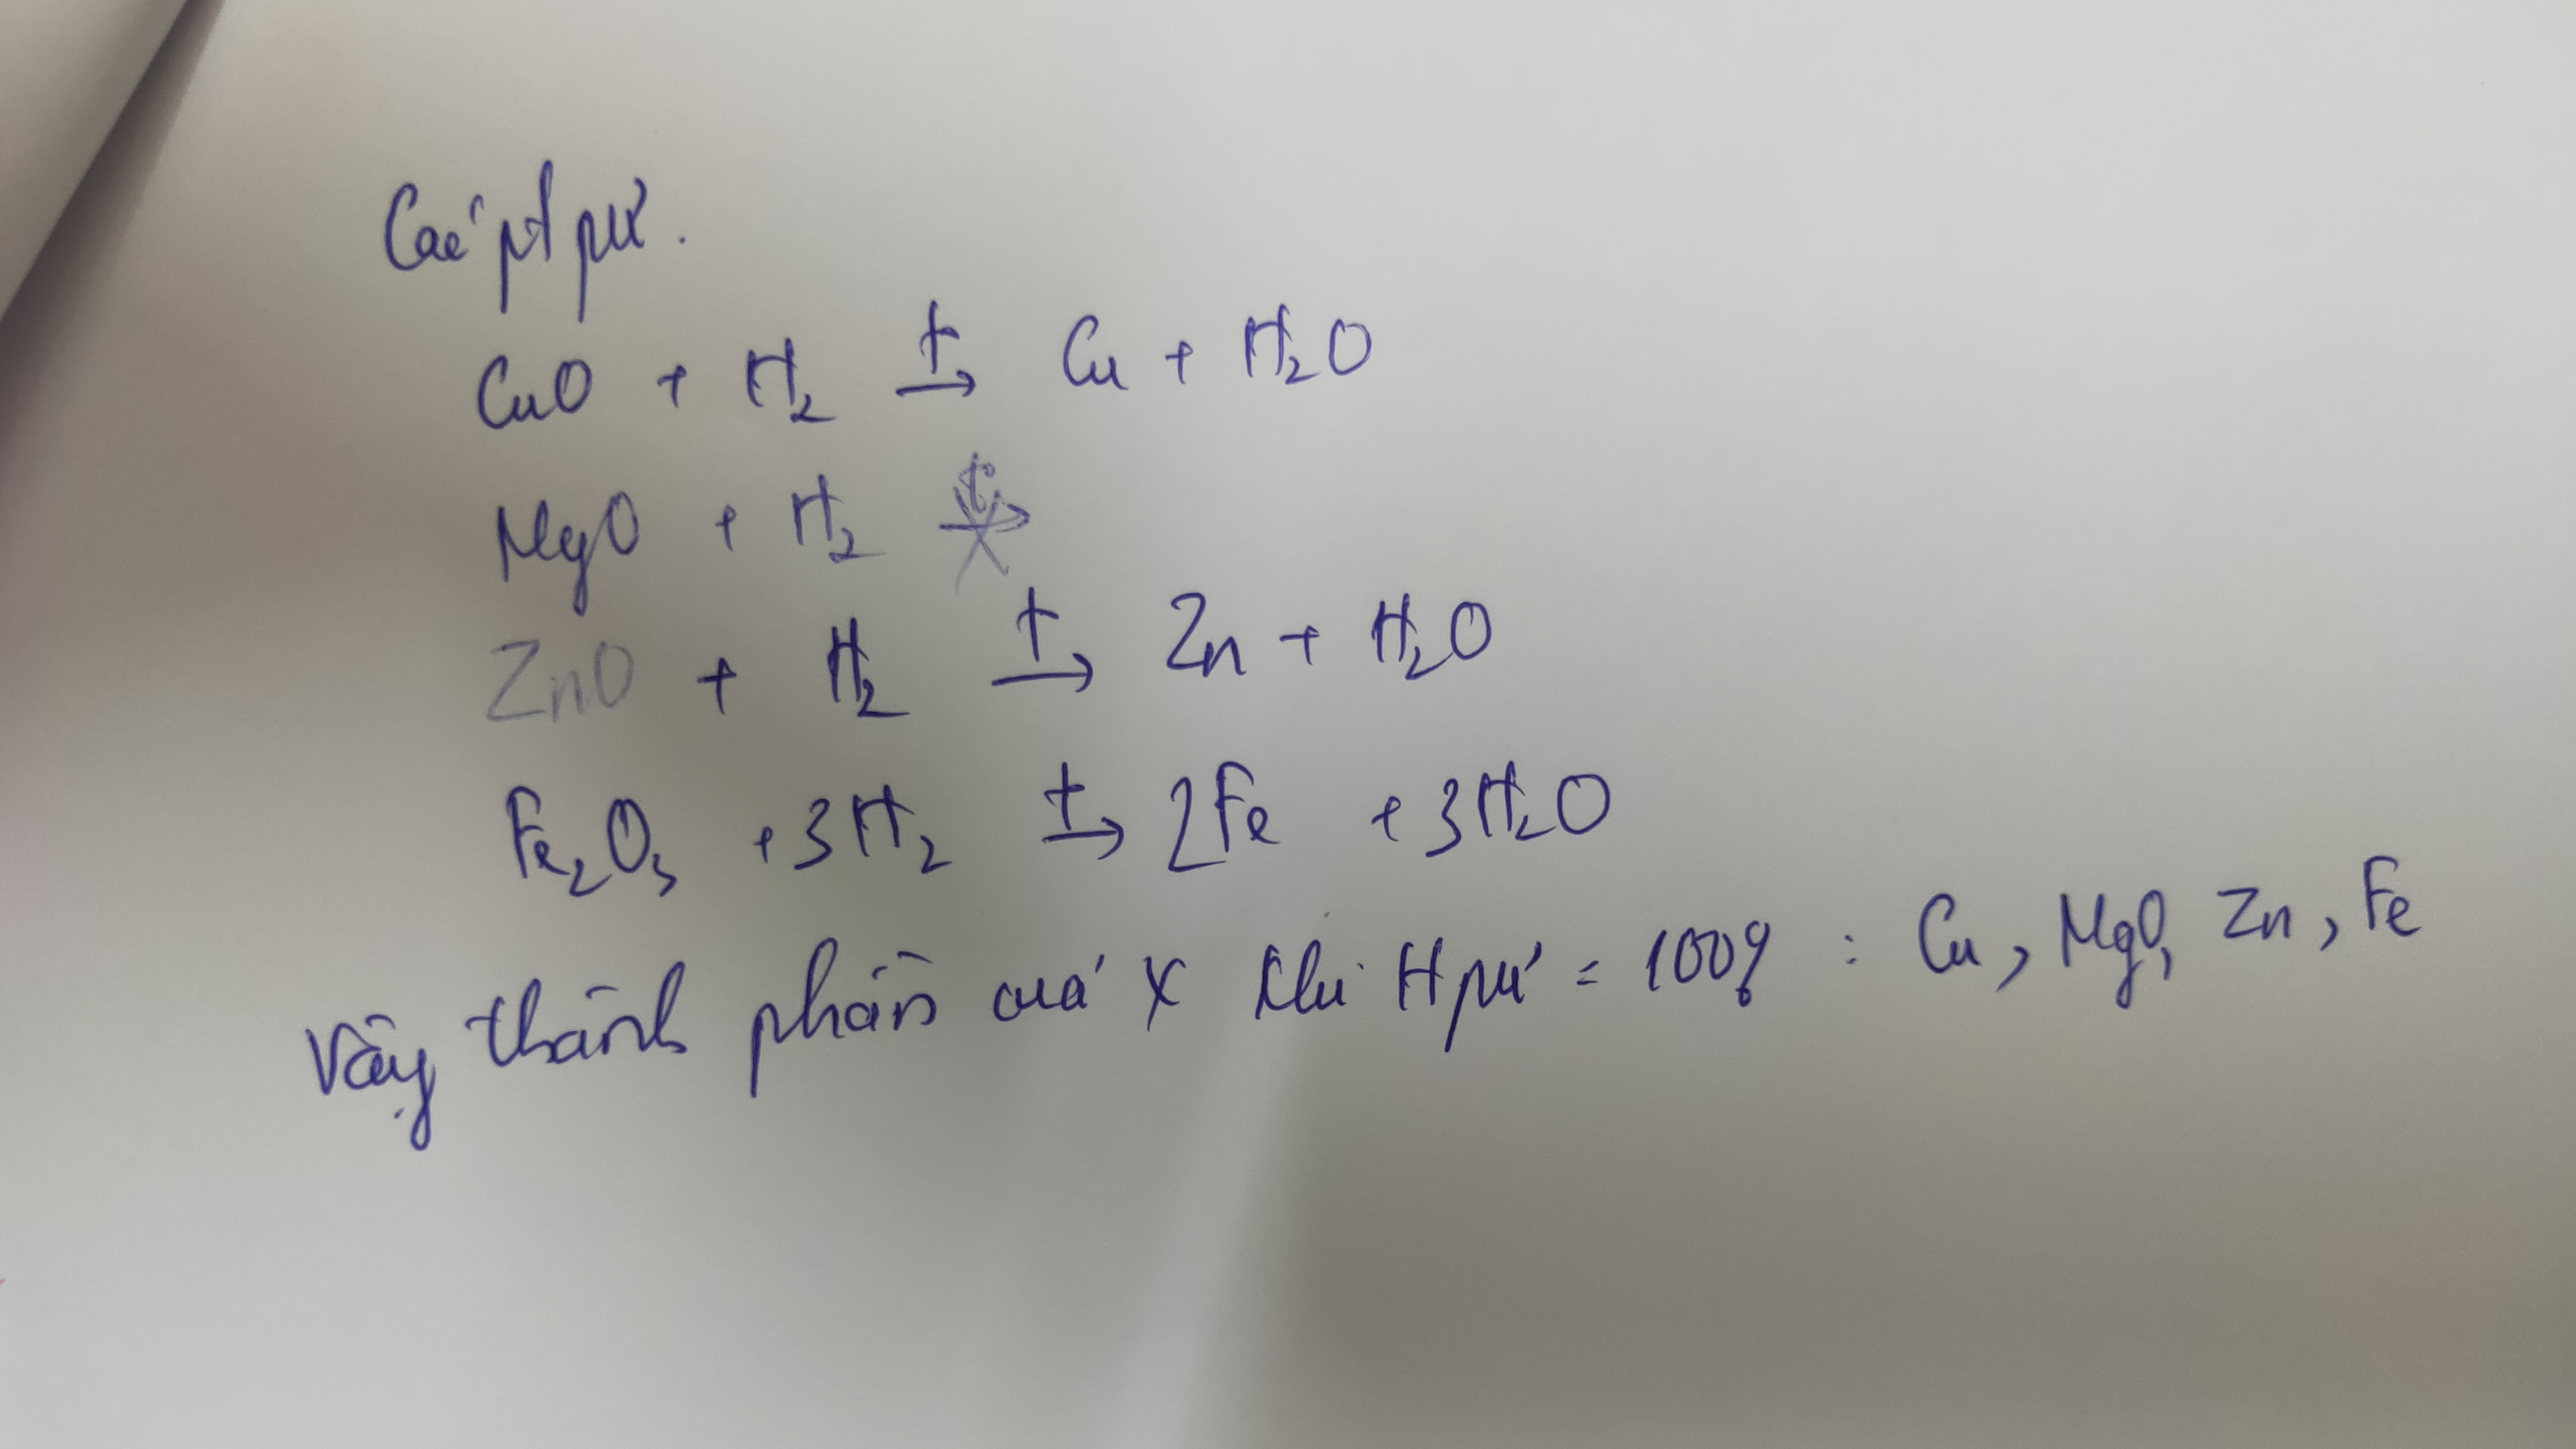 Các pt pứ.
CuO + H₂ →(t) Cu + H₂O
MgO + H₂ →(t°)
ZnO + H₂ →(t) Zn + H₂O
Fe₂O₃ + 3H₂ →(t) 2Fe + 3H₂O
Vậy thành phần của X khi H pứ = 100% : Cu, MgO, Zn, Fe